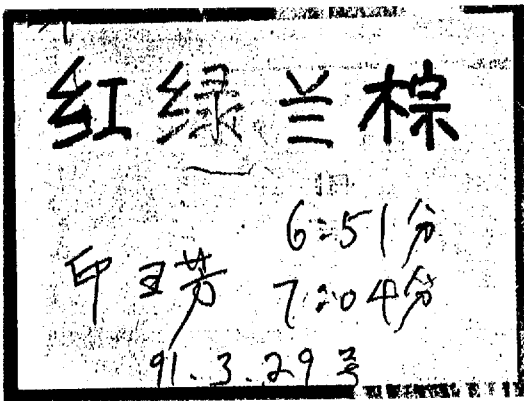 红绿兰棕
6:51分
印玉芳 7:04分
91.3.29号